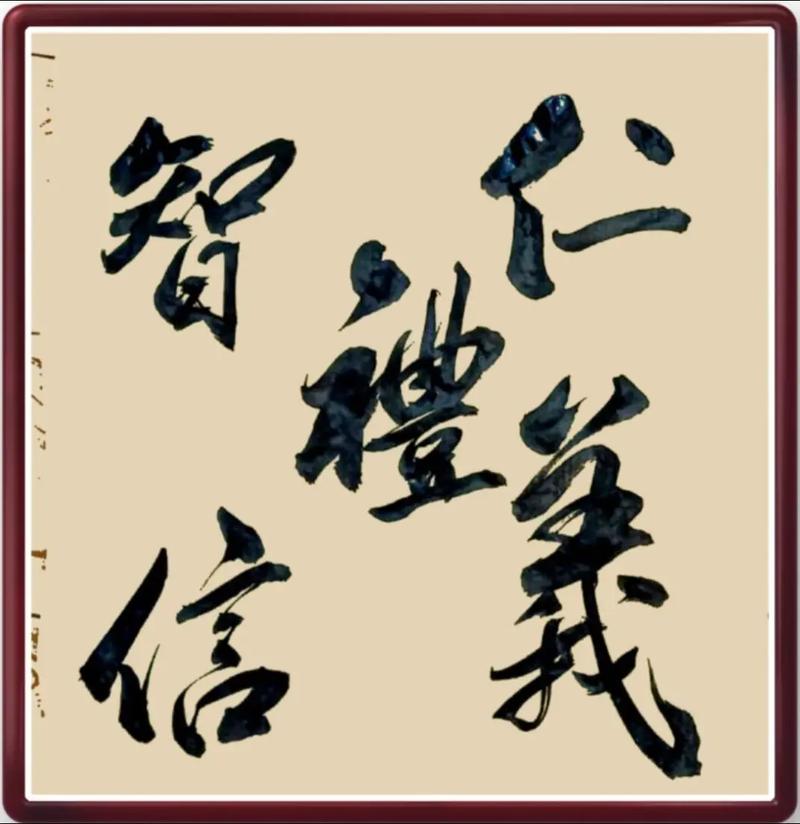 仁義
禮
智信